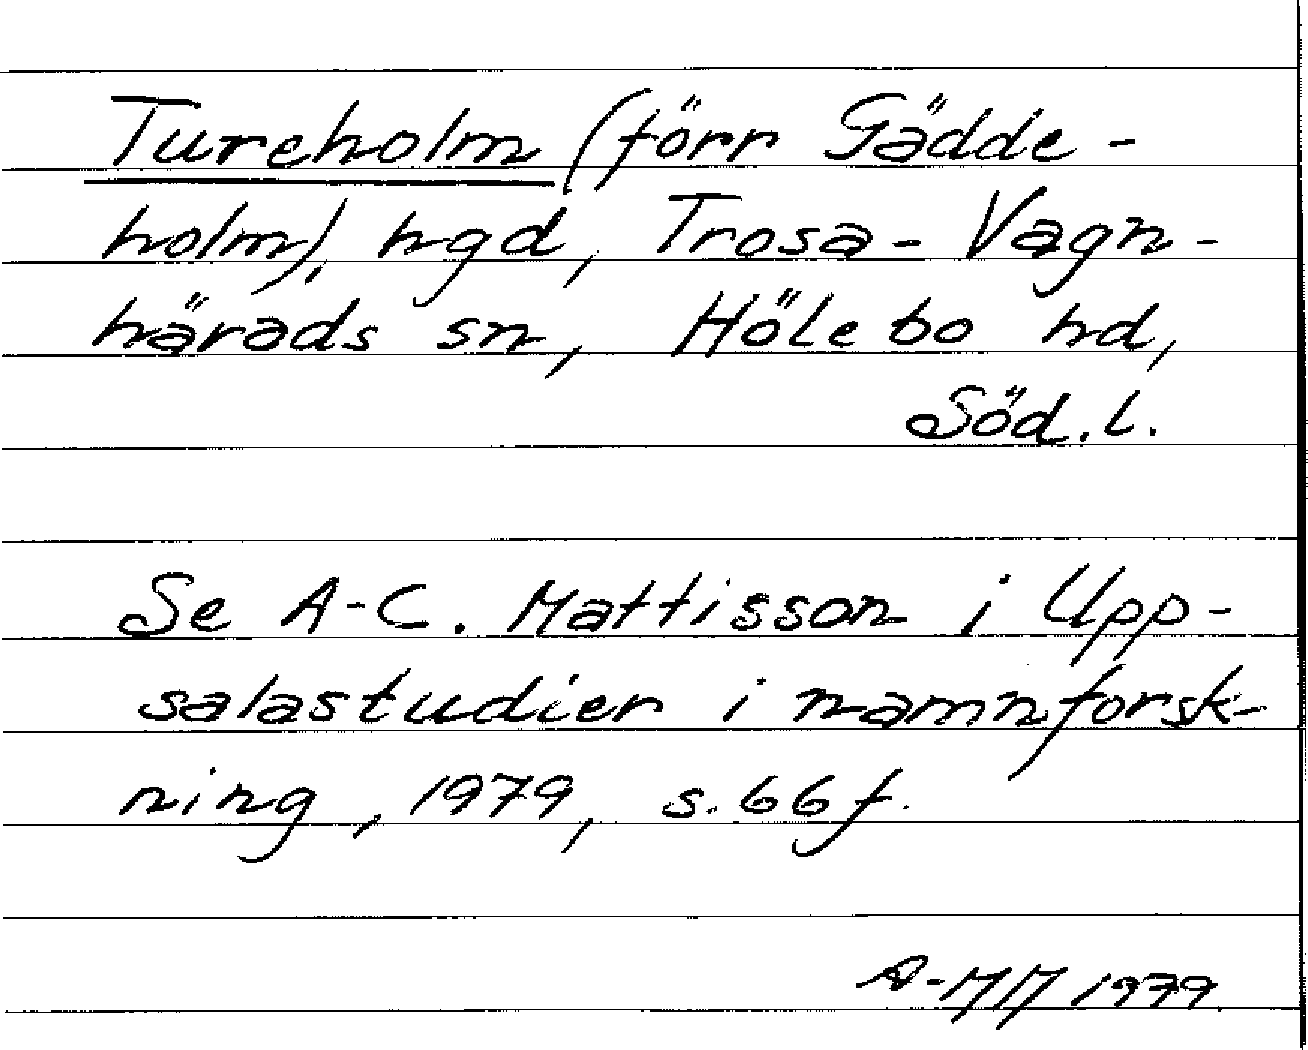 Tureholm (förr Gädde-
holm), hgd, Trosa-Vagn-
härads sn, Hölebo hd,
Söd. l.
Se A-C. Mattisson i Upp-
salastudier i namnforsk-
ning, 1979, s. 66 f.
A-MM 1979